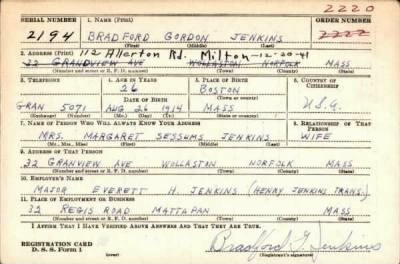 2220
SERIAL NUMBER 1. NAME (Print) ORDER NUMBER
2194 BRADFORD GORDON JENKINS 2222
(First) (Middle) (Last)
2. ADDRESS (Print) 112 Allerton Rd. Milton - 12-20-41
32 GRANDVIEW AVE WOLLASTON NORFOLK MASS
(Number and street or R. F. D. number) (Town) (County) (State)
3. TELEPHONE 4. AGE IN YEARS 5. PLACE OF BIRTH 6. COUNTRY OF CITIZENSHIP
26 BOSTON
DATE OF BIRTH (Town or county)
GRAN 5071 AUG 26 1914 MASS U.S.A.
(Exchange) (Number) (Mo.) (Day) (Yr.) (State or country)
7. NAME OF PERSON WHO WILL ALWAYS KNOW YOUR ADDRESS 8. RELATIONSHIP OF THAT PERSON
MRS. MARGARET SESSUMS JENKINS WIFE
(Mr., Mrs., Miss) (First) (Middle) (Last)
9. ADDRESS OF THAT PERSON
32 GRANVIEW AVE WOLLASTON NORFOLK MASS
(Number and street or R. F. D. number) (Town) (County) (State)
10. EMPLOYER'S NAME
MAJOR EVERETT H. JENKINS (HENRY JENKINS TRANS.)
11. PLACE OF EMPLOYMENT OR BUSINESS
32 REGIS ROAD MATTAPAN MASS
(Number and street or R. F. D. number) (Town) (County) (State)
I AFFIRM THAT I HAVE VERIFIED ABOVE ANSWERS AND THAT THEY ARE TRUE.
REGISTRATION CARD
D. S. S. Form 1 (over) Bradford G. Jenkins
(Registrant's signature)